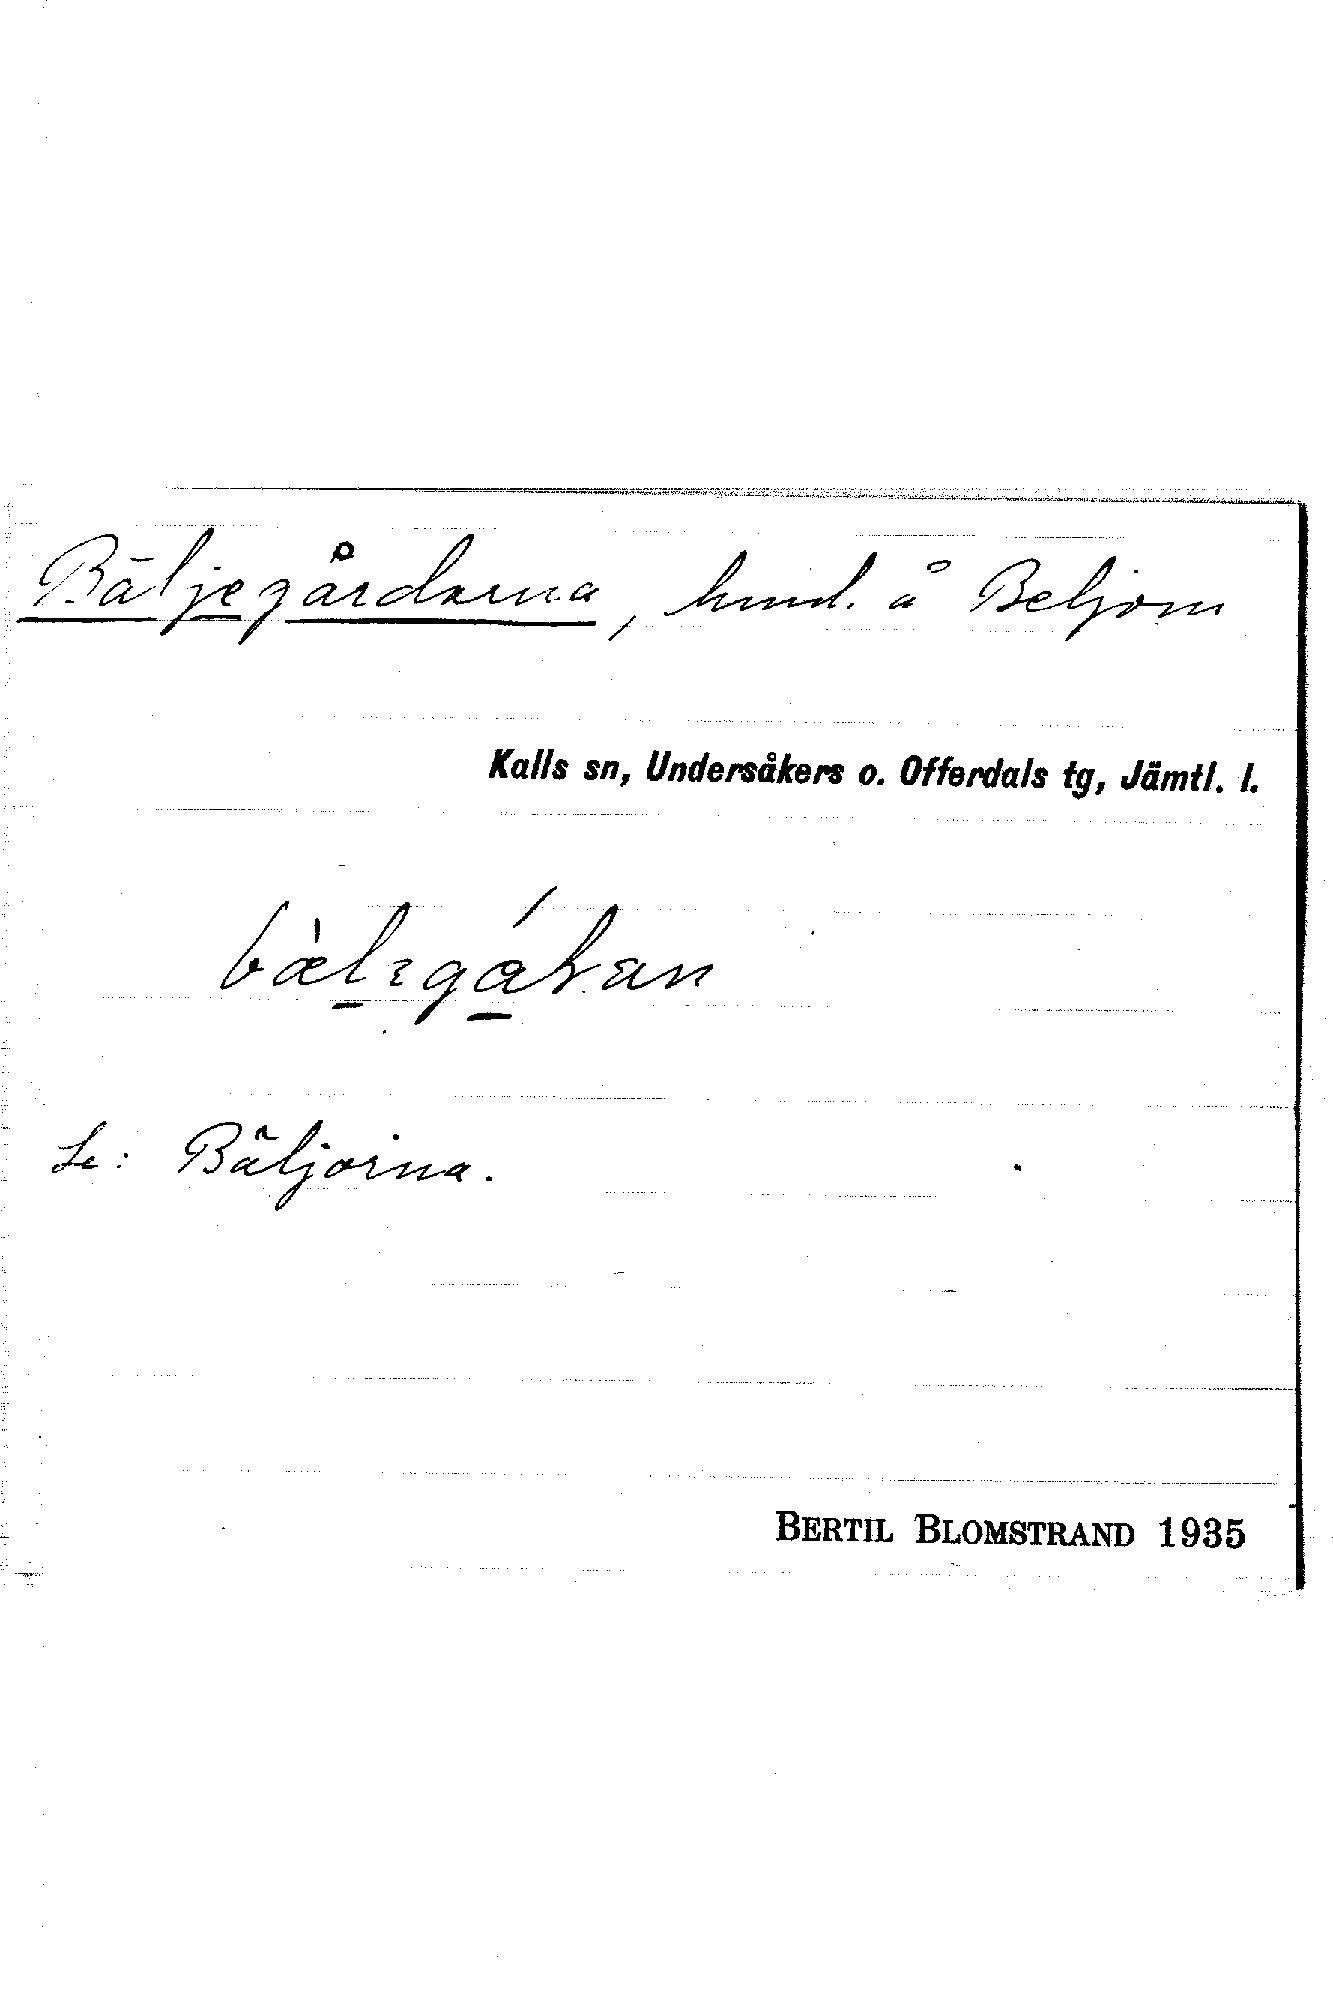 Bäljegårdarna, hmd. å Beljom
Kalls sn, Undersåkers o. Offerdals tg, Jämtl. l.
Se: Bäljorna.
BERTIL BLOMSTRAND 1935